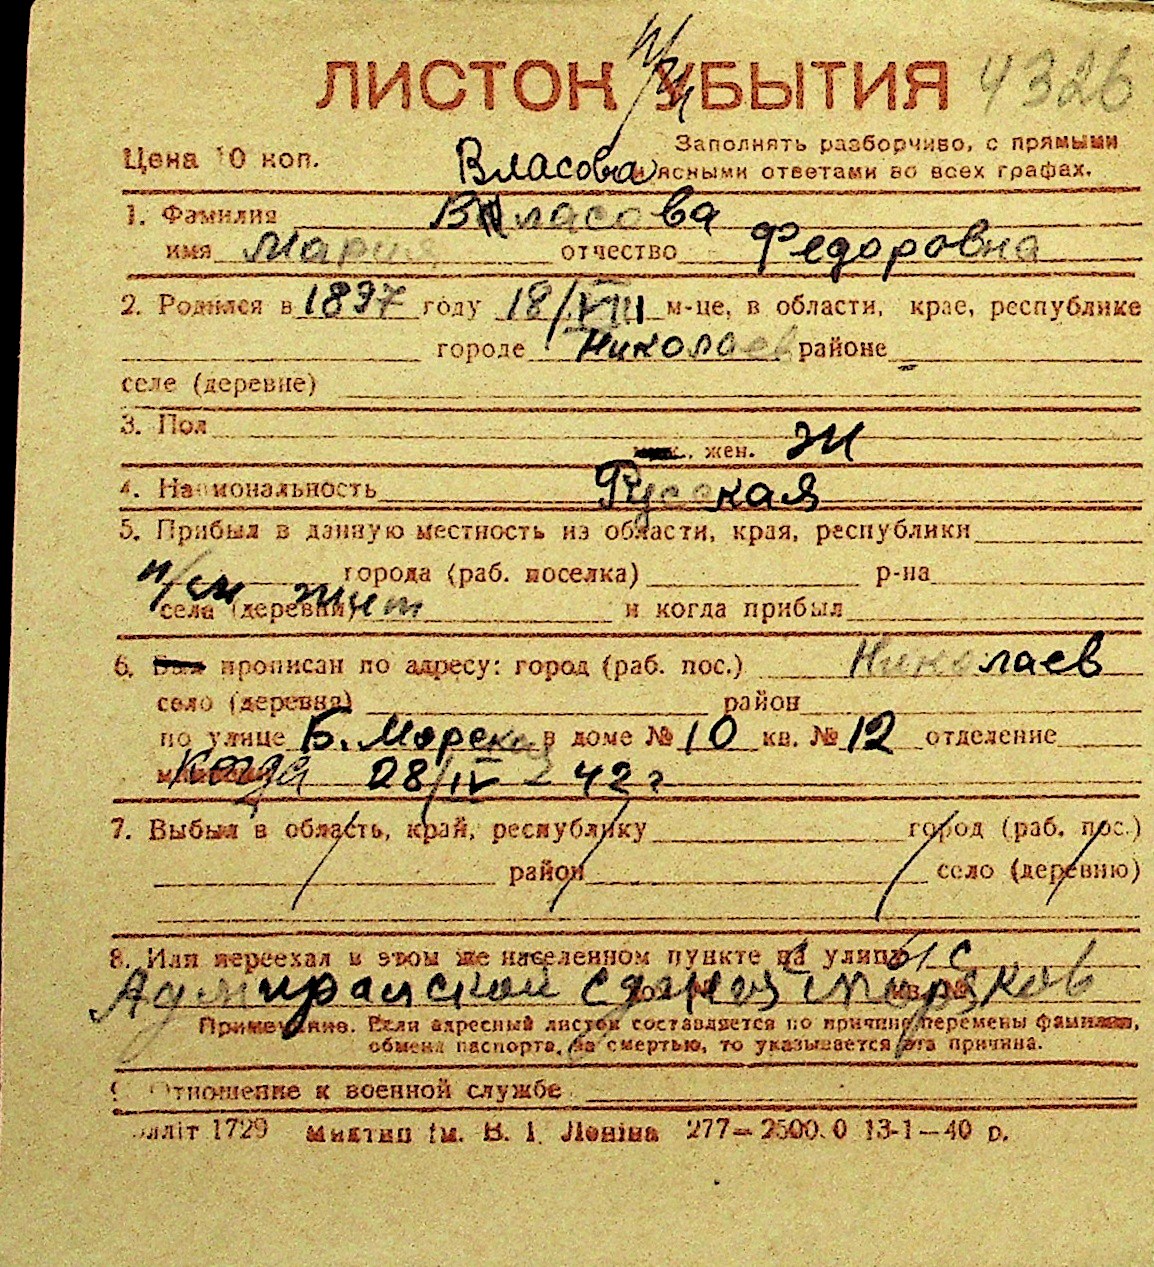 ЛИСТОК УБЫТИЯ 4326
Цена 10 коп. Власова Заполнять разборчиво, с прямыми
и ясными ответами во всех графах.
1. Фамилия Власова
имя Мария отчество Федоровна
2. Родился в 1897 году 18/VIII м-це, в области, крае, республике
городе Николаев районе -
селе (деревне)
3. Пол
муж., жен. Ж
4. Национальность Русская
5. Прибыл в данную местность из области, края, республики
города (раб. поселка) р-на
села (деревни) и когда прибыл
6. Был прописан по адресу: город (раб. пос.) Николаев
село (деревня) район
по улице Б. Морская в доме № 10 кв. № 12 отделение
Когда 28/IV - 42 г
7. Выбыл в область, край, республику город (раб. пос.)
район село (деревню)
8. Или переехал в этом же населенном пункте на улицу с
Адмиральской
Примечание. Если адресный листок составляется по причине перемены фамилии,
обмена паспорта, за смертью, то указывается эта причина.
9. Отношение к военной службе
лліт 1729 Миктип ім. В. І. Леніна 277—2500.0 13-1—40 р.